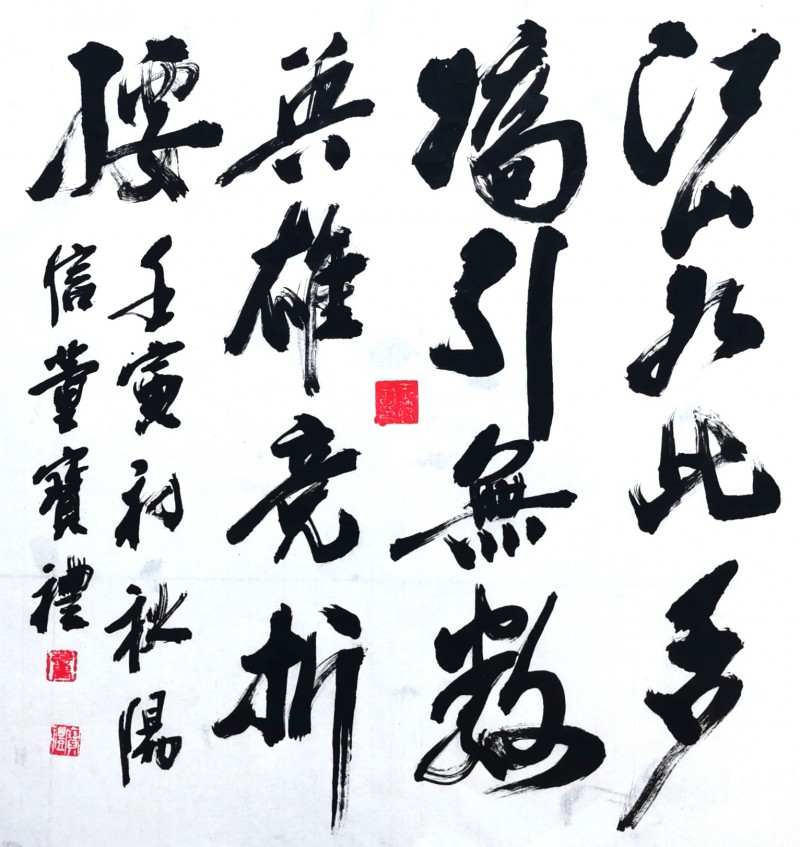 江山如此多
嬌引無數
英雄竞折
腰
壬寅初秋陽
信董寳禮